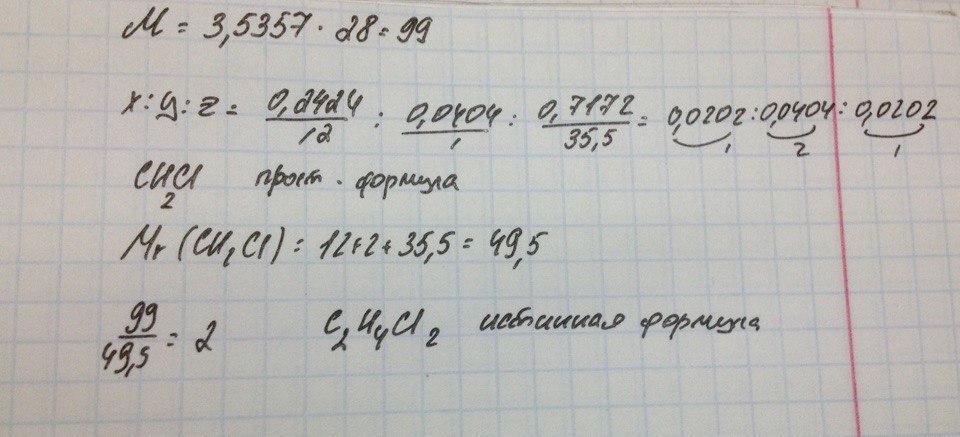 M = 3,5357 · 28 = 99
x : y : z = 0,2424/12 : 0,0404/1 : 0,7172/35,5 = 0,0202 : 0,0404 : 0,0202
1 2 1
CH₂Cl прост. формула
Mr (CH₂Cl) = 12+2+35,5 = 49,5
99/49,5 = 2 C₂H₄Cl₂ истинная формула